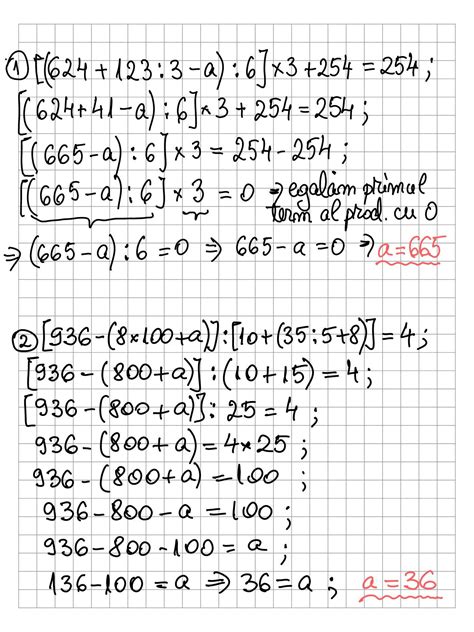 ① [(624+123:3-a):6]×3+254=254;
[(624+41-a):6]×3+254=254;
[(665-a):6]×3=254-254;
[(665-a):6]×3=0 ⇒ egalăm primul
term al prod. cu 0
⇒ (665-a):6=0 ⇒ 665-a=0 ⇒ a=665
② [936-(8×100+a)]:[10+(35:5+8)]=4;
[936-(800+a)]:(10+15)=4;
[936-(800+a)]:25=4;
936-(800+a)=4×25;
936-(800+a)=100;
936-800-a=100;
936-800-100=a;
136-100=a ⇒ 36=a; a=36